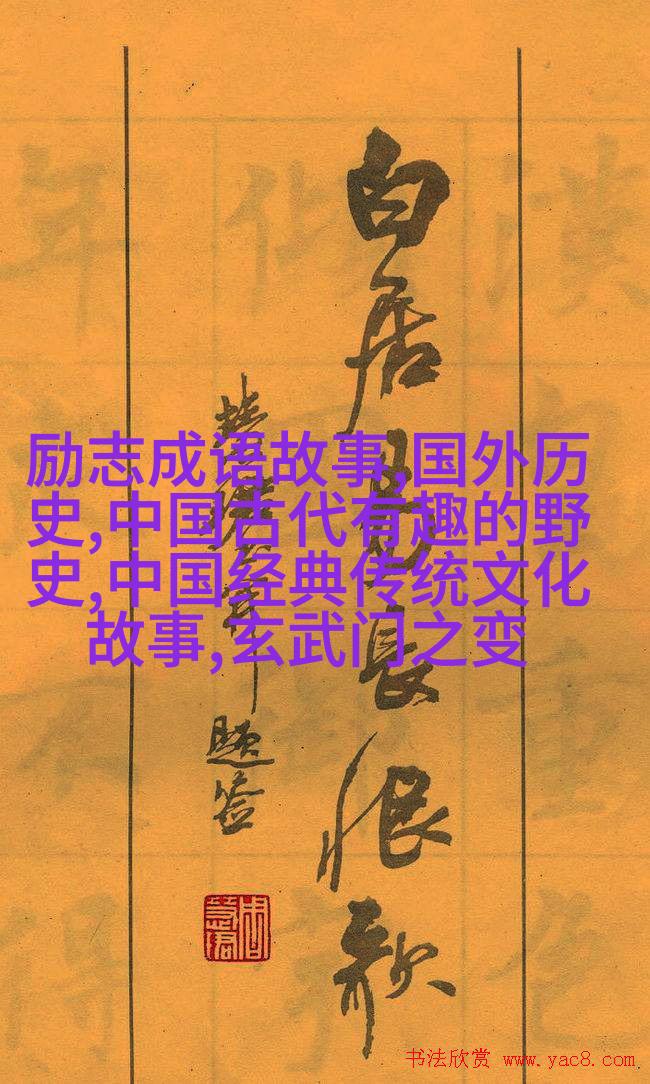 白居易長恨歌
題签
励志成语故事,国外历
史,中国古代有趣的野
史,中国经典传统文化
故事,玄武门之变
书法欣赏 www.yac8.com